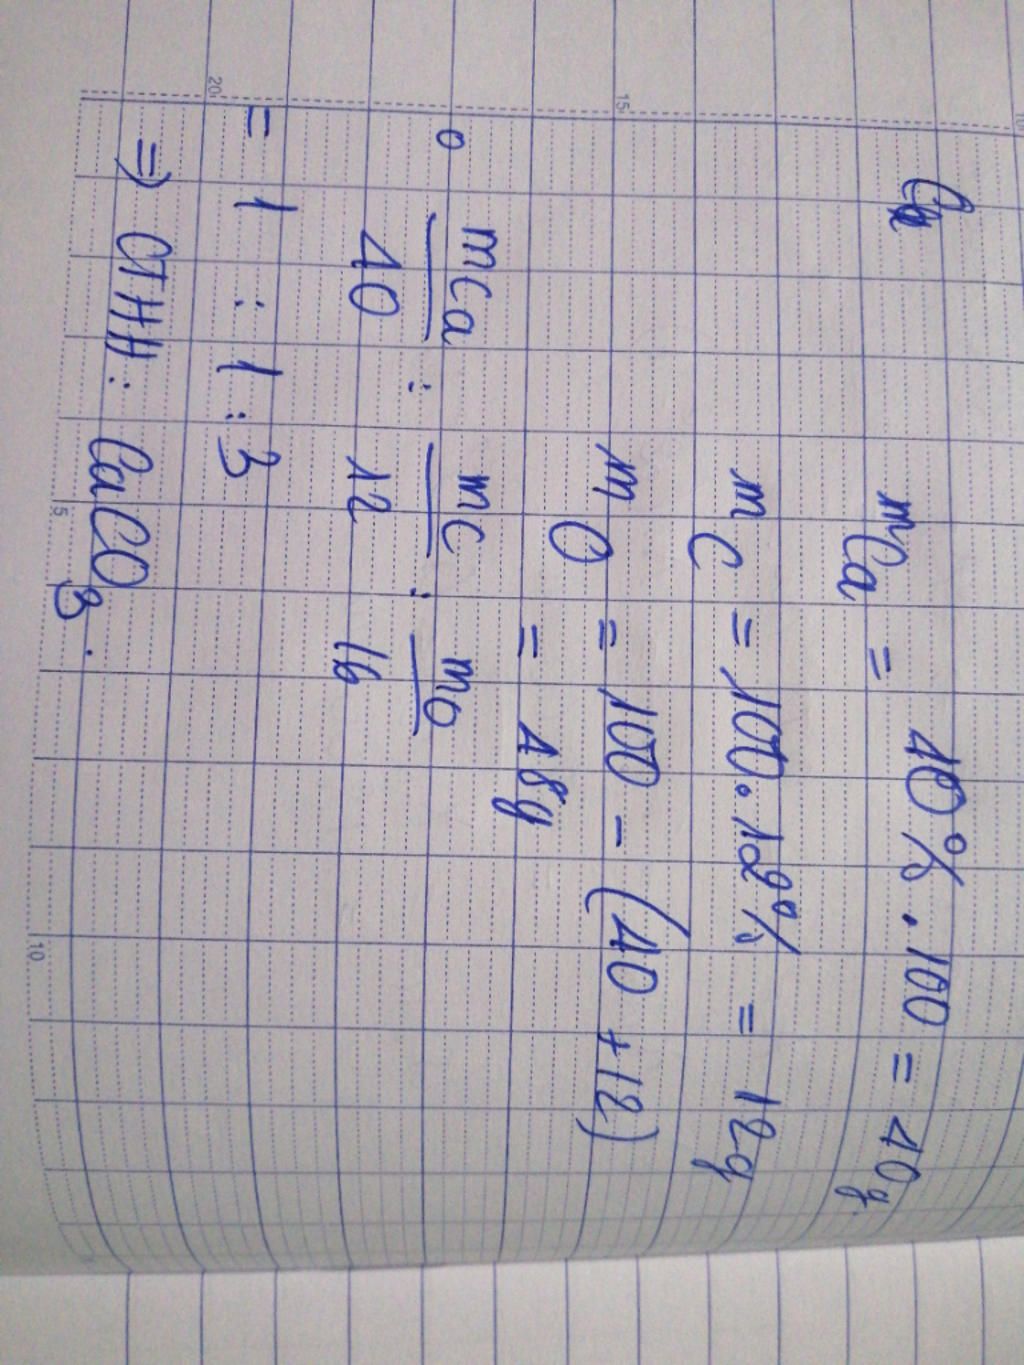 m Ca = 40% . 100 = 40g
m C = 100 . 12% = 12g
m O = 100 - (40 + 12)
= 48g
mCa : mC : mO
40 12 16
= 1 : 1 : 3
=> CTHH : CaCO3.
20
15
10
5
10